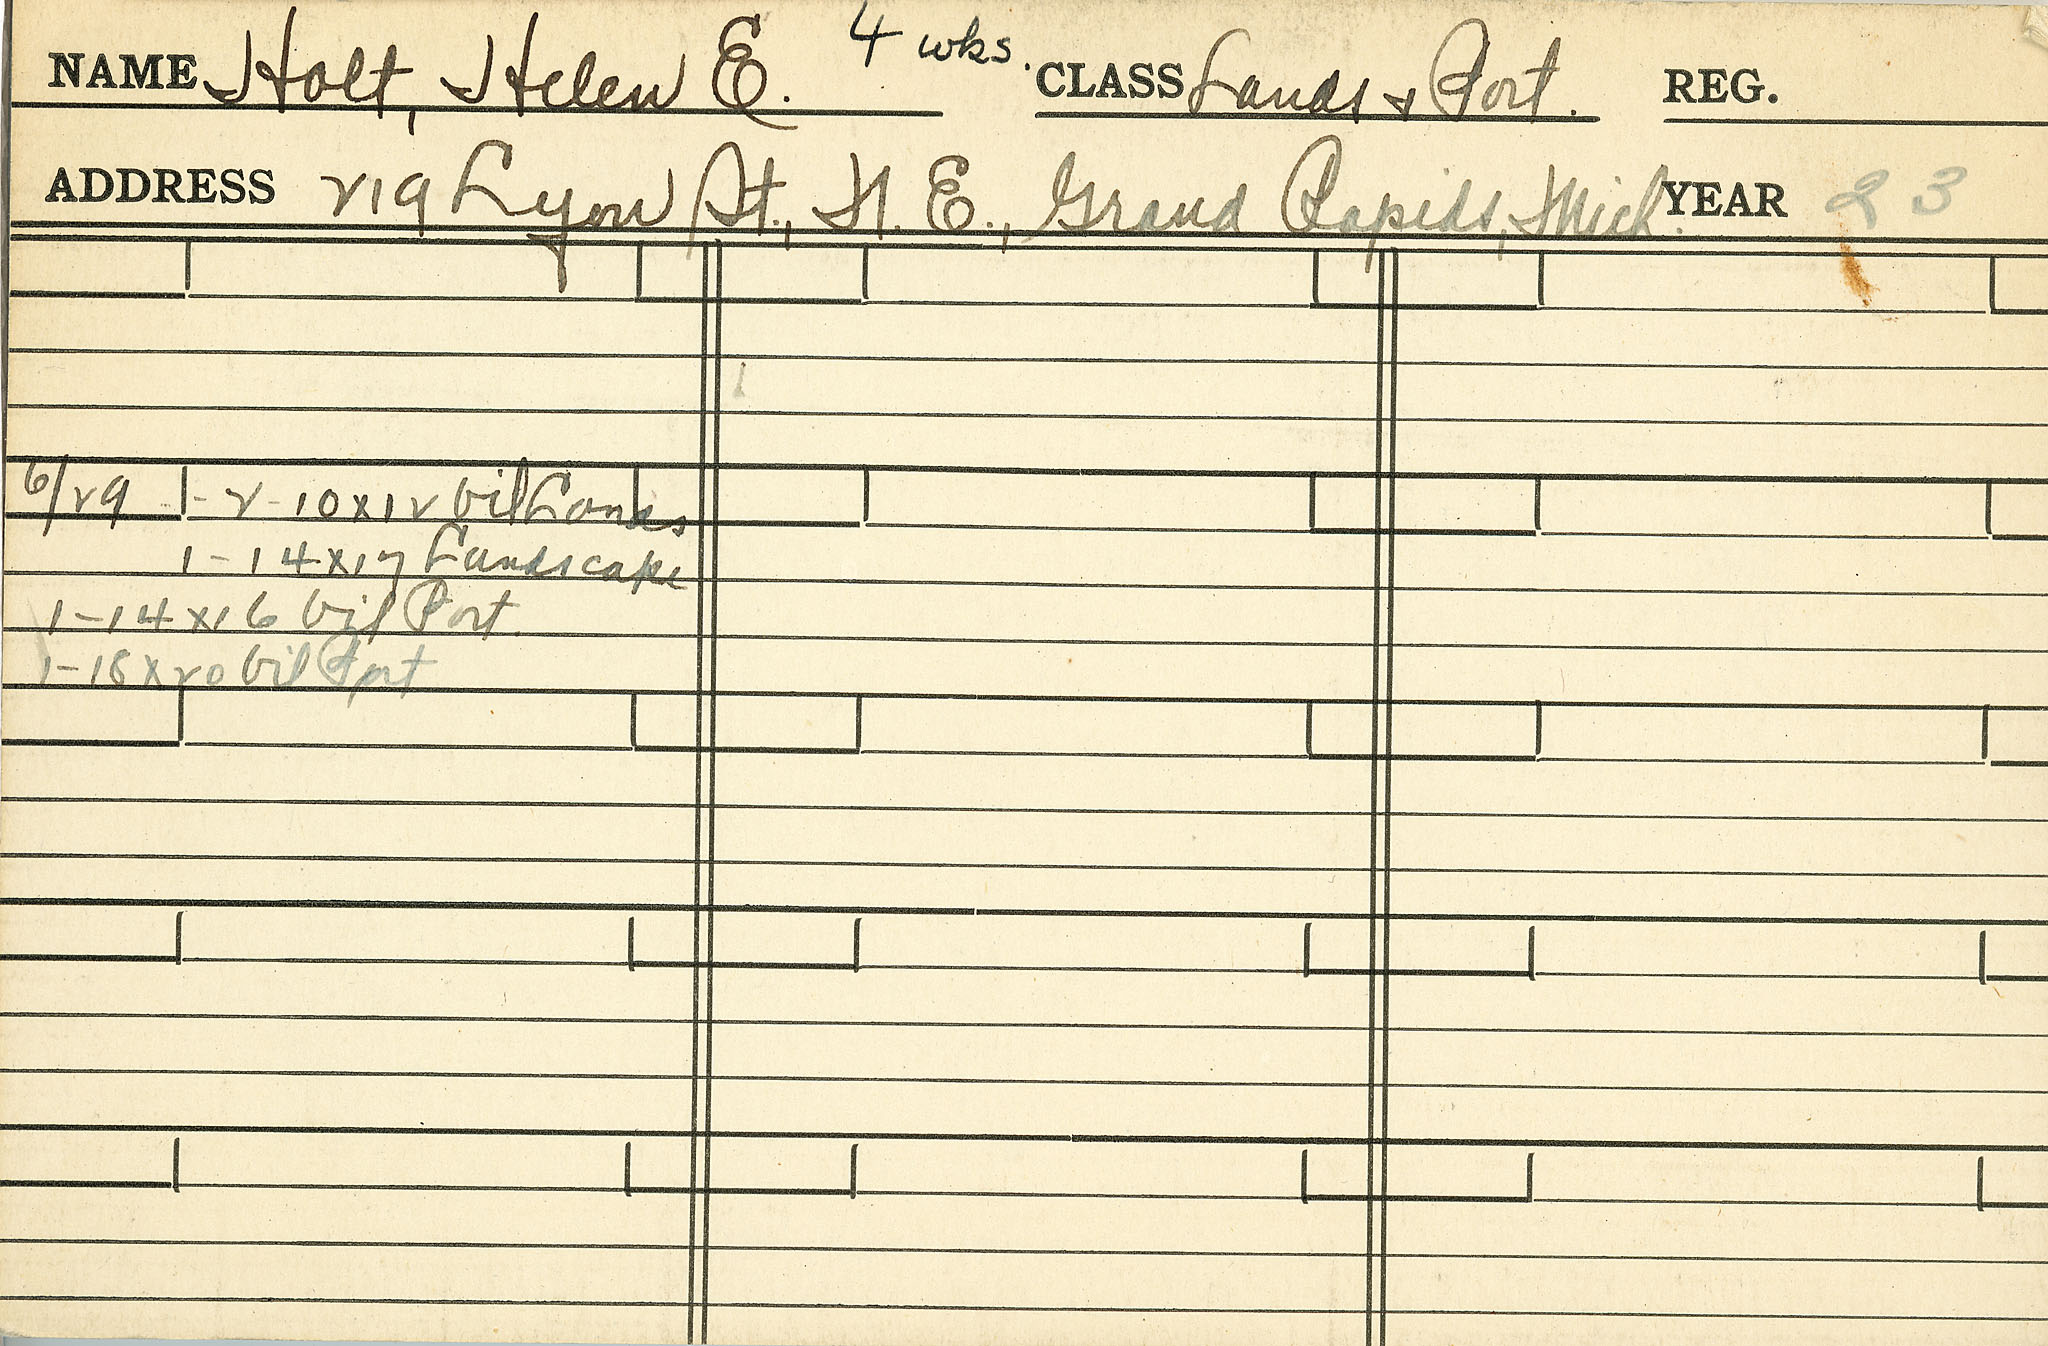 NAME Holt, Helen E. 4 wks. CLASS Lands & Port. REG.
ADDRESS 219 Lyon St., N. E., Grand Rapids, Mich. YEAR 23
6/29 - 2-10x12 Oil Lands
1-14x17 Landscape
1-14x16 Oil Port.
1-18x20 Oil Port